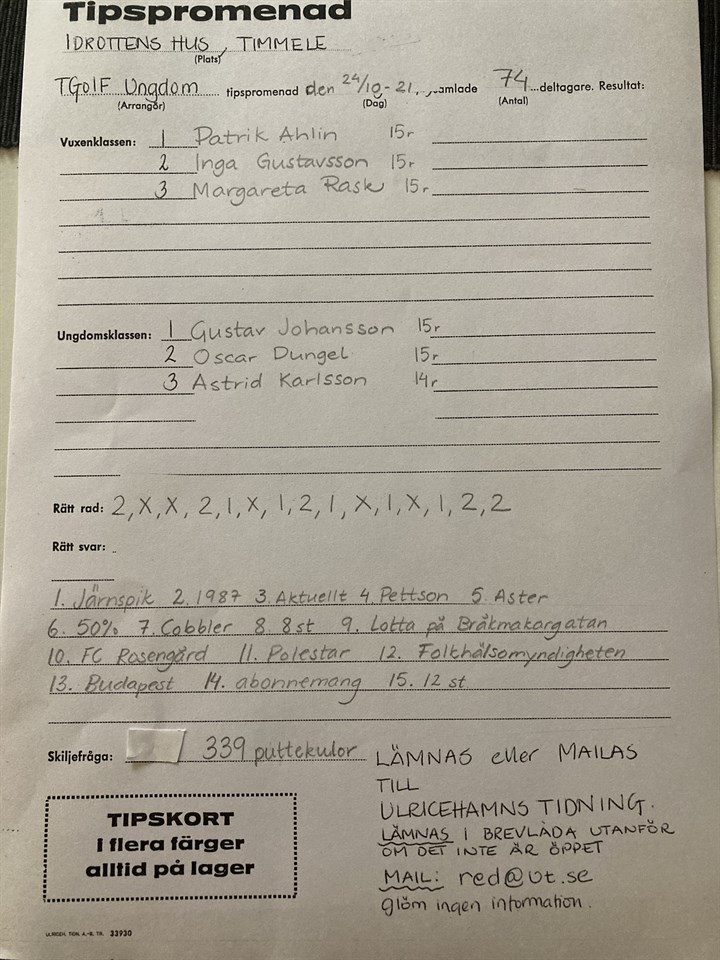 Tipspromenad
IDROTTENS HUS, TIMMELE
(Plats)
TGoIF Ungdom tipspromenad den 24/10-21, samlade 74 deltagare. Resultat:
(Arrangör) (Dag) (Antal)
Vuxenklassen: 1 Patrik Ahlin 15r
2 Inga Gustavsson 15r
3 Margareta Rask 15r
Ungdomsklassen: 1 Gustav Johansson 15r
2 Oscar Dungel 15r
3 Astrid Karlsson 14r
Rätt rad: 2, X, X, 2, 1, X, 1, 2, 1, X, 1, X, 1, 2, 2
Rätt svar:
1. Järnspik 2. 1987 3. Aktuellt 4. Pettson 5. Aster
6. 50% 7. Cobbler 8. 8 st 9. Lotta på Bråkmakargatan
10. FC Rosengård 11. Polestar 12. Folkhälsomyndigheten
13. Budapest 14. abonnemang 15. 12 st
Skiljefråga: 339 puttekulor
LÄMNAS eller MAILAS
TILL
ULRICEHAMNS TIDNING.
LÄMNAS I BREVLÅDA UTANFÖR
OM DET INTE ÄR ÖPPET
MAIL: red@ut.se
glöm ingen information.
TIPSKORT
I flera färger
alltid på lager
ULRICEH. TIDN. A.-B. TR. 33930